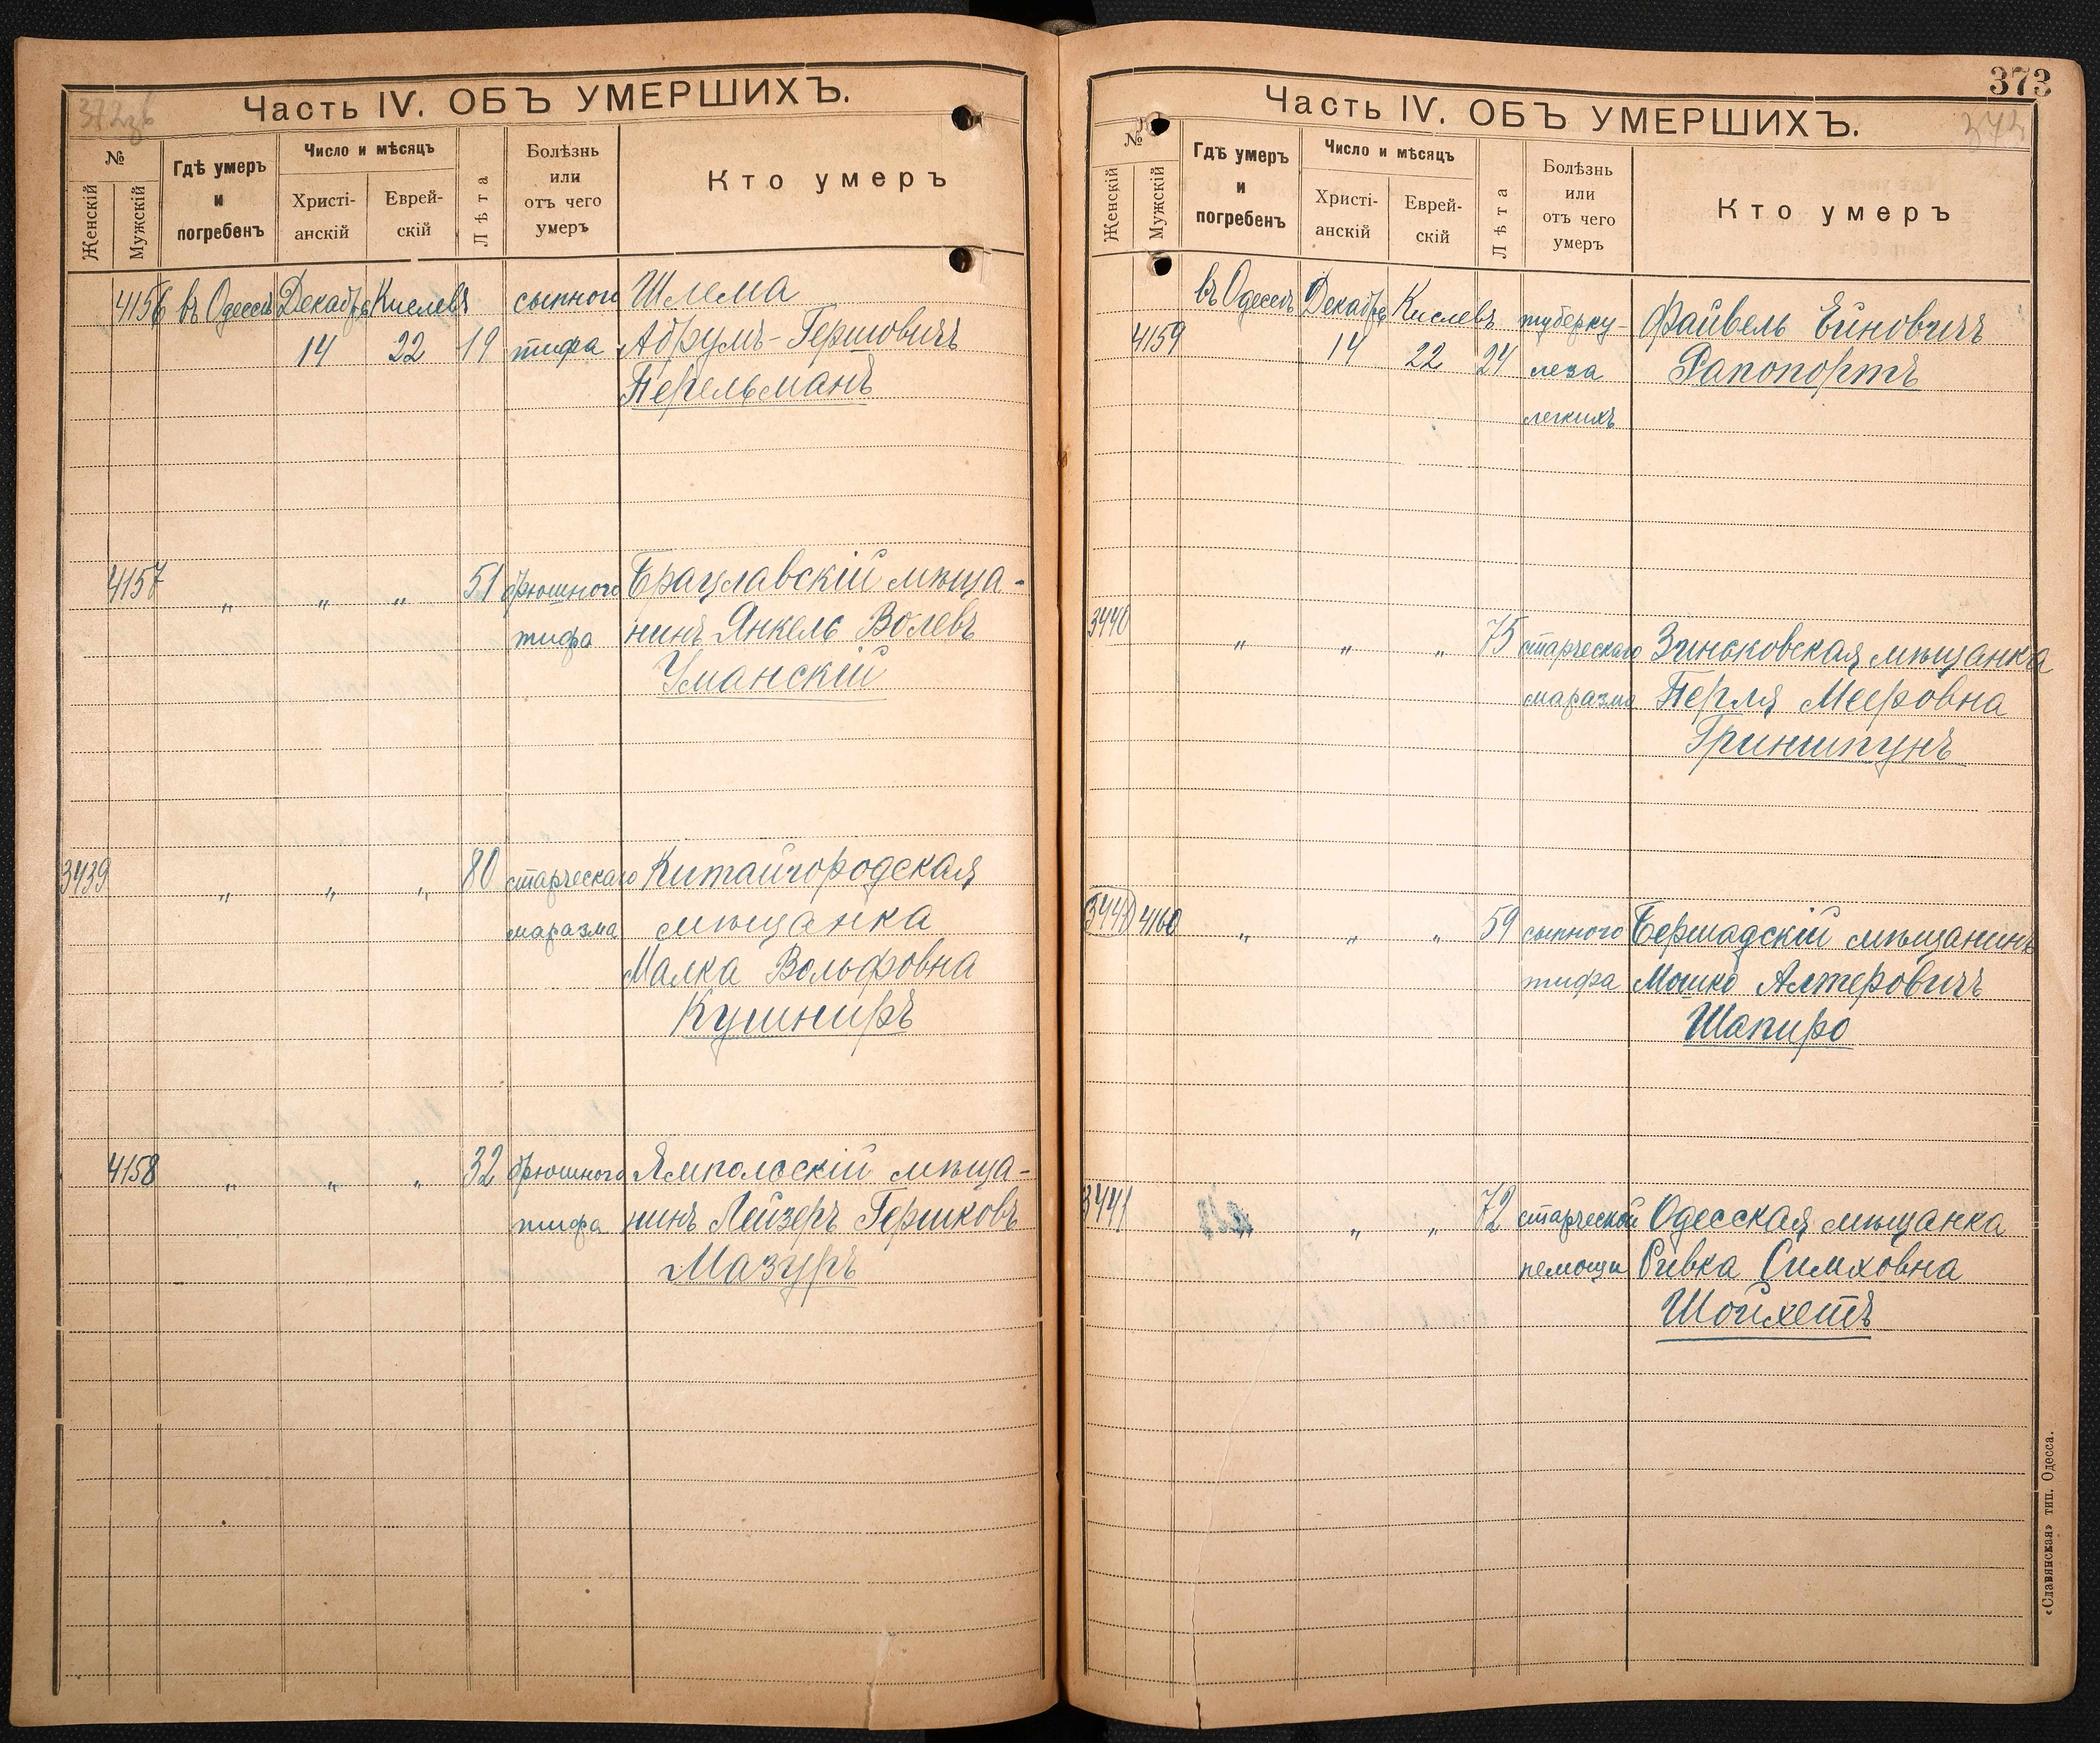 372об
Часть IV. ОБЪ УМЕРШИХЪ.
№
Женскій
Мужскій
Гдѣ умеръ
и
погребенъ
Число и мѣсяцъ
Христі-
анскій
Еврей-
скій
Лѣта
Болѣзнь
или
отъ чего
умеръ
Кто умеръ
4156 въ Одессѣ Декабрь Кислевъ сыпного Шлема
14 22 19 тифа Абрумъ-Гершовичъ
Перельманъ
4157 „ „ „ 51 брюшного Брацлавскій мѣща-
тифа нинъ Янкель Волевъ
Уманскій
3439 „ „ „ 80 старческаго Китайгородская
маразма мѣщанка
Малка Вольфовна
Кушниръ
4158 „ „ „ 32 брюшного Ямпольскій мѣща-
тифа нинъ Лейзеръ Гершковъ
Мазуръ
373
373
Часть IV. ОБЪ УМЕРШИХЪ.
№
Женскій
Мужскій
Гдѣ умеръ
и
погребенъ
Число и мѣсяцъ
Христі-
анскій
Еврей-
скій
Лѣта
Болѣзнь
или
отъ чего
умеръ
Кто умеръ
въ Одессѣ Декабрь Кислевъ туберку- Файвель Ейновичъ
4159 14 22 24 леза Рапопортъ
легкихъ
3440 „ „ „ 75 старческаго Зиньковская мѣщанка
маразма Перля Мееровна
Гриншпунъ
3441 4160 „ „ „ 59 сыпного Бершадскій мѣщанинъ
тифа Мошко Алтеровичъ
Шапиро
3441 „ „ „ 72 старческой Одесская мѣщанка
немощи Ривка Симховна
Шойхетъ
«Славянская» тип. Одесса.